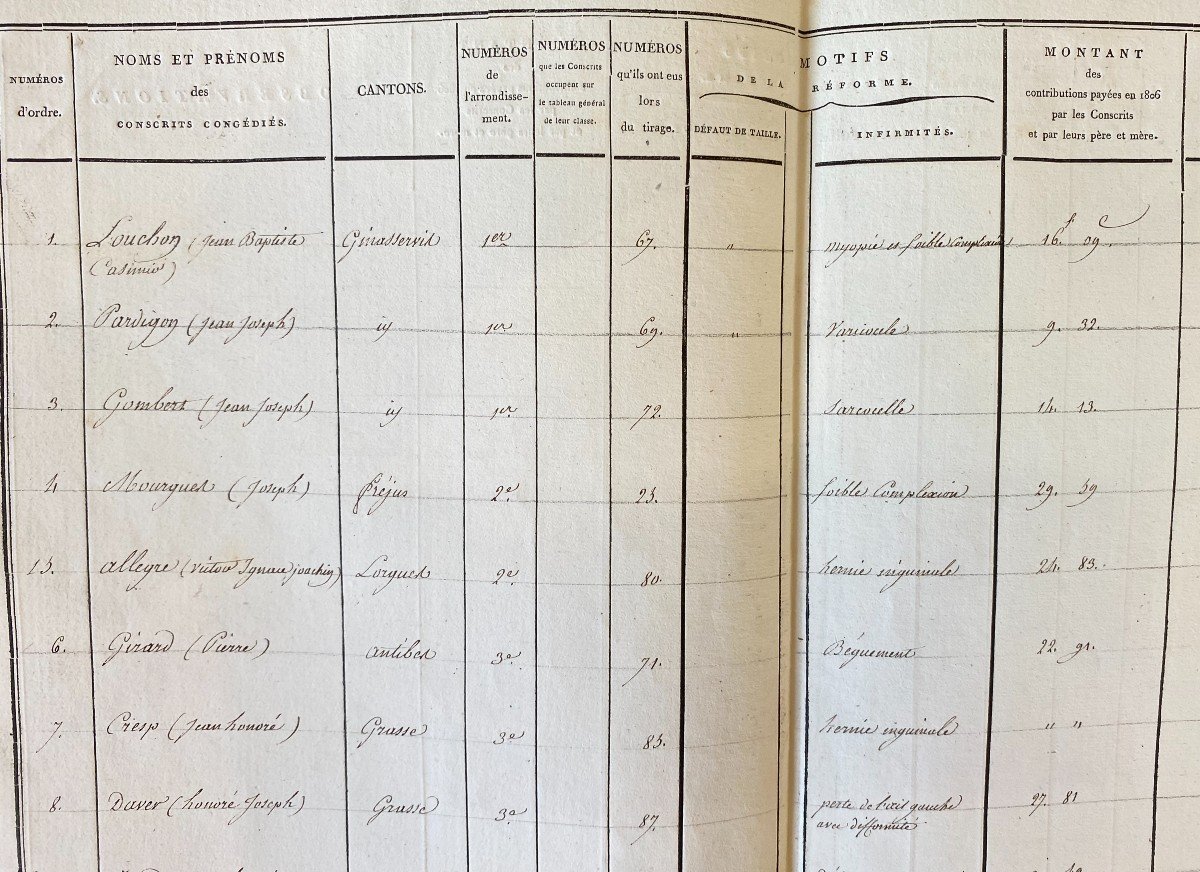 NUMÉROS d'ordre.
NOMS ET PRÉNOMS des CONSCRITS CONGÉDIÉS.
CANTONS.
NUMÉROS de l'arrondisse-ment.
NUMÉROS que les Conscrits occupent sur le tableau général de leur classe.
NUMÉROS qu'ils ont eus lors du tirage.
MOTIFS DE LA RÉFORME.
DÉFAUT DE TAILLE.
INFIRMITÉS.
MONTANT des contributions payées en 1806 par les Conscrits et par leurs père et mère.
1. Louchon (Jean Baptiste Ginasservis 1er 67. " myopie et foible Complexion 16f 09c.
Casimir)
2. Pardigon (Jean Joseph) 1er 69. " Varicocele 9. 32.
3. Gombert (Jean Joseph) 1er 72. Sarcocelle 14. 13.
4 Mourgues (Joseph) fréjus 2e 25. foible Complexion 29. 59
15. allegre (victor Ignace joachin) Lorgues 2e 80. hernie inguinale 24. 83.
6. Girard (Pierre) antibes 3e 71. Béguement 22. 91.
7. Cresp (Jean honoré) Grasse 3e 85. hernie inguinale " "
8. Daver (honoré Joseph) Grasse 3e 87. perte de l'œil gauche 27. 81
avec difformité